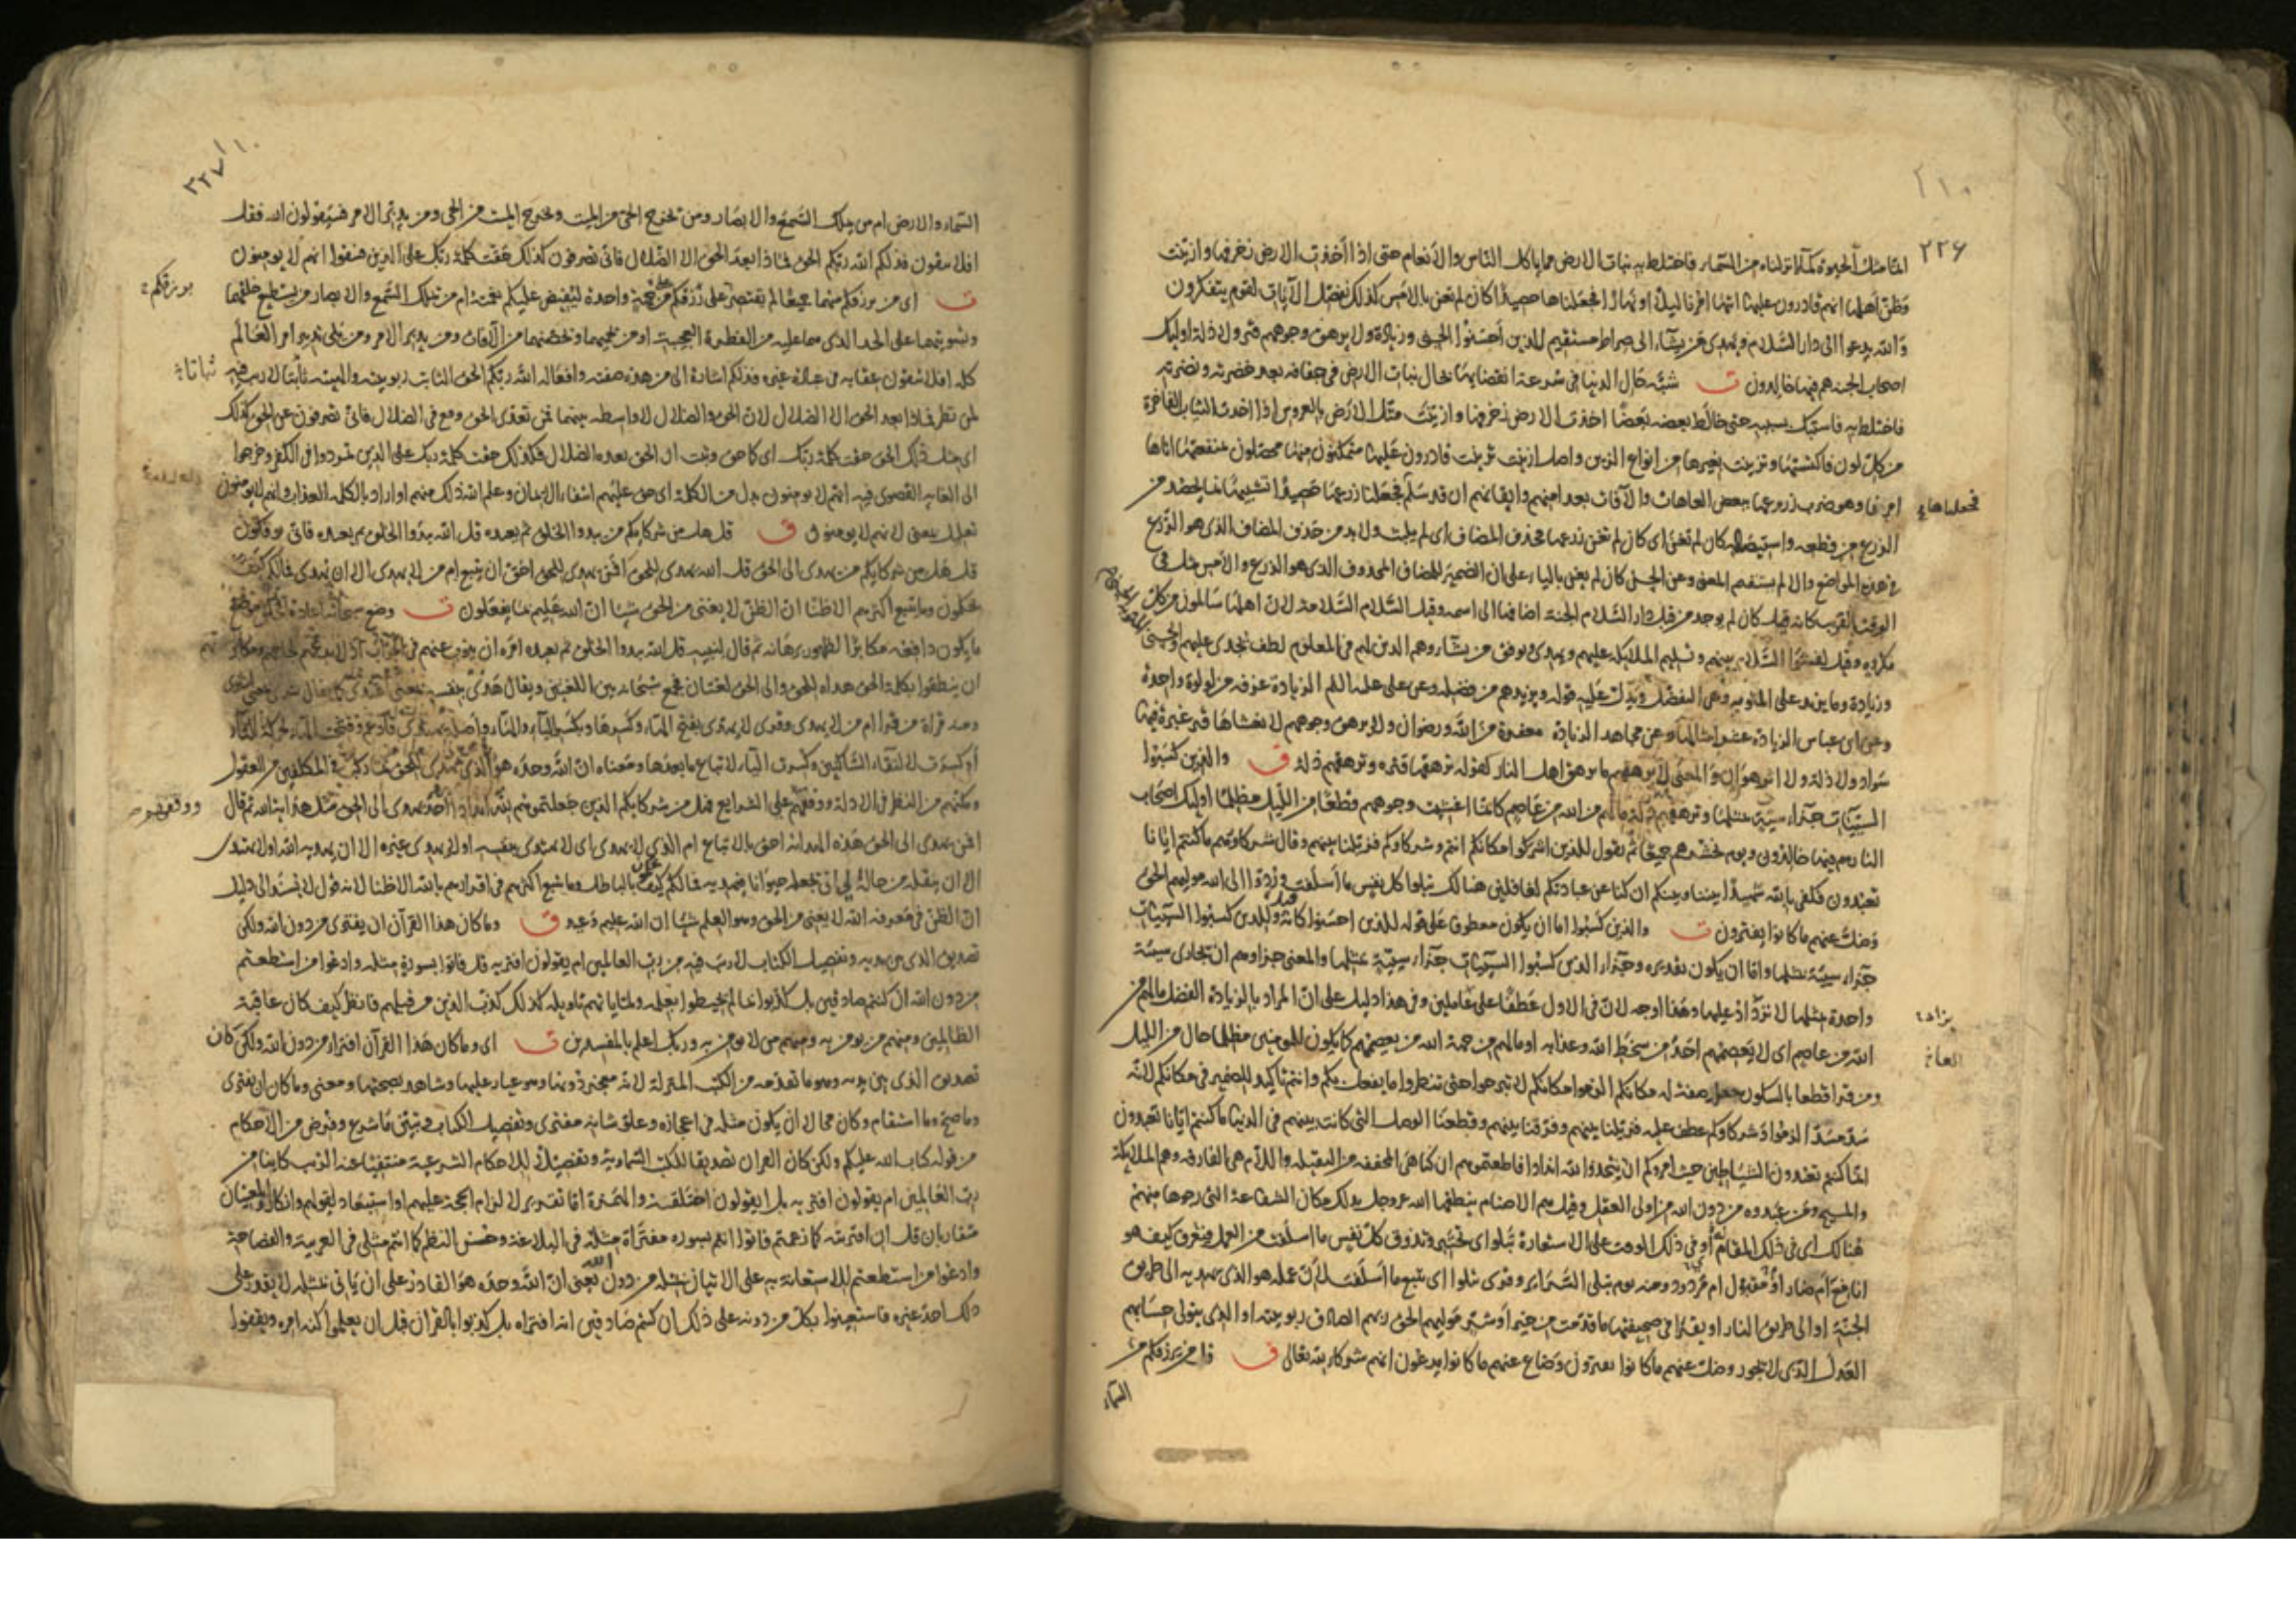 ٢٢۶
انما مثل الحيوة كماء انزلناه من السماء فاختلط به نبات الارض مما ياكل الناس والانعام حتى اذا اخذت الارض زخرفها وازينت
وظن اهلها انهم قادرون عليها اتيها امرنا ليلا او نهارا فجعلناها حصيدا كان لم تغن بالامس كذلك نفصل الآيات لقوم يتفكرون
والله يدعوا الى دار السلام ويهدى من يشاء الى صراط مستقيم للذين احسنوا الحسنى وزيادة ولا يرهق وجوههم قتر ولا ذلة اوليك
اصحاب الجنه هم فيها خالدون ت شبه حال الدنيا فى سرعة انقضايها بحال نبات الارض فى جفافه بعد خضرته ونضرته
فاختلط به فاشتبك بسببه حتى خالط بعضه بعضا اخذت الارض زخرفها وازينت مثل الارض بالعروس اذا اخذت الثياب الفاخرة
من كل لون فاكتستها وتزينت بغيرها من انواع الزين واصل ازينت تزينت قادرون عليها متمكنون منها محصلون منفعتها اتاها
امرنا وهو ضرب زروعها ببعض العاهات والآفات بعد امنهم وايقانهم ان قد سلم فجعلنا زرعها حصيدا تشبيها بما يحصد من
فجعلناها
الزرع من قطعه واستيصاله كان لم تغن اى كان لم تغن زرعها بحذف المضاف اى لم يلبث ولا بد من حذف المضاف الذى هو الزرع
فى هذه المواضع والا لم يستقم المعنى وعن الحسن كان لم يغن بالياء على ان الضمير للمضاف المحذوف الذى هو الزرع والامس مثل فى
الوقت القريب كانه قيل كان لم يوجد من قبل دار السلام الجنة اضافها الى اسمه وقيل السلام السلامة لان اهلها سالمون من كل
مكروه وقيل لفشو السلام بينهم وتسليم الملايكة عليهم ويهدى ويوفق من يشاء وهم الذين لهم فى المعلوم لطف يجدى عليهم الحسنى
وزيادة وما يزيد على المثوبه وهى التفضل ويدل عليه قوله ويزيدهم من فضله وعن على عليه السلم الزيادة غرفه من لولوة واحدة
وعن ابن عباس الزيادة عشر امثالها وعن مجاهد الزيادة مغفرة من الله ورضوان ولا يرهق وجوههم لا يغشاها قتر غبرة فيها
سواد ولا ذلة ولا اثر هوان والمعنى لا يرهقهم ما يرهق اهل النار كقوله ترهقها قتره وترهقهم ذلة ق والذين كسبوا
السيئات جزاء سيئة بمثلها وترهقهم ذلة ما لهم من الله من عاصم كانما اغشيت وجوههم قطعا من الليل مظلما اوليك اصحاب
النار هم فيها خالدون ويوم نحشرهم جميعا ثم نقول للذين اشركوا مكانكم انتم وشركاوكم فزيلنا بينهم وقال شركاؤهم ما كنتم ايانا
تعبدون فكفى بالله شهيدا بيننا وبينكم ان كنا عن عبادتكم لغافلين هنالك تبلوا كل نفس ما اسلفت وردوا الى الله موليهم الحق
وضل عنهم ما كانوا يفترون ت والذين كسبوا اما ان يكون معطوفا على قوله للذين احسنوا كانه قيل وللذين كسبوا السيئات
جزاء سيئة بمثلها واما ان يكون تقديره وجزاء الذين كسبوا السيئات جزاء سيئة بمثلها والمعنى جزاوهم ان تجازى سيئة
واحدة بمثلها لا تزاد عليها وهذا اوجه لان فى الاول عطفا على عاملين وفى هذا دليل على ان المراد بالزيادة الفضل ما لهم من
يزاد
الله من عاصم اى لا يعصمهم احد من سخط الله وعذابه او ما لهم من جهة الله من يعصمهم كما يكون للمومنين مظلما حال من الليل
ومن قرا قطعا بالسكون جعله صفة له مكانكم الزموا مكانكم لا تبرحوا حتى تنظروا ما يفعل بكم وانتم تاكيد للضمير فى مكانكم لانه
سد مسد الزموا وشركاوكم عطف عليه فزيلنا بينهم وفرقنا بينهم وقطعنا الوصل التى كانت بينهم فى الدنيا ما كنتم ايانا تعبدون
انما كنتم تعبدون الشياطين حيث امروكم ان تتخذوا لله اندادا فاطعتموهم ان كنا هى المخففه من الثقيله واللام هى الفارقه وهم الملايكة
والمسيح ومن عبدوه من دون الله من اولى العقل وقيل هم الاصنام ينطقها الله عز وجل بذلك مكان الشفاعة التى رجوها منهم
هنالك اى فى ذلك المقام او فى ذلك الوقت على الاستعارة تبلوا اى تختبر وتذوق كل نفس ما اسلفت من العمل فتعرف كيف هو
انافع ام ضار او مقبول ام مردود ومنه يوم تبلى السراير وقرى تتلوا اى تتبع ما اسلفت لان عمله هو الذى يهديه الى طريق
الجنة او الى طريق النار او يقرا فى صحيفتها ما قدمت من خير او شر موليهم الحق ربهم الصادق ربوبيته او الذى يتولى حسابهم
العدل الذى لا يجور وضل عنهم ما كانوا يفترون وضاع عنهم ما كانوا يدعون انهم شركاء لله تعالى ق قل من يرزقكم من
السماء
٢٢٧
السماء والارض ام من يملك السمع والابصار ومن يخرج الحى من الميت ويخرج الميت من الحى ومن يدبر الامر فسيقولون الله فقل
افلا تتقون فذلكم الله ربكم الحق فماذا بعد الحق الا الضلال فانى تصرفون كذلك حقت كلمة ربك على الذين فسقوا انهم لا يومنون
ت اى من يرزقكم منهما جميعا لم يقتصر على رزقكم من جهة واحدة ليفيض عليكم نعمته ام من يملك السمع والابصار من يستطيع خلقهما
يرزقكم
وتسويتهما على الحد الذى هما عليه من الفطرة العجيبة او من يحميهما ويحصنهما من الآفات ومن يدبر الامر ومن يلى تدبير امر العالم
كله افلا تتقون عقابه فى عبادة غيره فذلكم اشارة الى من هذه صفته وافعاله الله ربكم الحق الثابت ربوبيته والهيته ثابتا لا ريب فيه
ثباتا
لمن نظر فماذا بعد الحق الا الضلال لان الحق والضلال لا واسطه بينهما فمن تعدى الحق وقع فى الضلال فانى تصرفون عن الحق كذلك
اى مثل ذلك الحق حقت كلمة ربك اى كما حق وثبت ان الحق بعده الضلال فكذلك حقت كلمة ربك على الذين تمردوا فى الكفر وخرجوا
الى الغايه القصوى فيه انهم لا يومنون بدل من الكلمة اى حق عليهم انتفاء الايمان وعلم الله ذلك منهم او اراد بالكلمه العذاب وانهم لا يومنون
تعليل بمعنى لانهم لا يومنون ق قل هل من شركايكم من يبدوا الخلق ثم يعيده قل الله يبدوا الخلق ثم يعيده فانى توفكون
قل هل من شركايكم من يهدى الى الحق قل الله يهدى للحق افمن يهدى الى الحق احق ان يتبع ام من لا يهدى الا ان يهدى فما لكم كيف
تحكمون وما يتبع اكثرهم الا ظنا ان الظن لا يغنى من الحق شيا ان الله عليم بما يفعلون ت وضع سبحانه اعادة الخلق موضع
ما يكون دافعه مكابرا لظهور برهانه ثم قال لنبيه قل الله يبدوا الخلق ثم يعيده امره ان ينوب عنهم فى الجواب
ان ينطقوا بكلمة الحق هداه للحق والى الحق لغتان فجمع سبحانه بين اللغتين ويقال هدى بنفسه بمعنى اهتدى كما يقال شرى بمعنى اشترى
ومنه قراة من قرا ام من لا يهدى وقرى لا يهدى بفتح الهاء وكسرها وبكسر الياء والهاء واصله يهتدى فادغم وفتحت الهاء بحركة التاء
او كسرت لالتقاء الساكنين وكسرت الياء لاتباع ما بعدها ومعناه ان الله وحده هو الذى يهدى للحق بما ركب فى المكلفين من العقول
ومكنهم من النظر فى الادلة ووقفهم على الشرايع فهل من شركايكم الذين جعلتموهم لله اندادا احد يهدى الى الحق مثل هداية الله ثم قال
ووقفهم
افمن يهدى الى الحق هذه الهداية احق بالاتباع ام الذى لا يهدى اى لا يهتدى بنفسه او لا يهدى غيره الا ان يهديه الله او لا يهتدى
الا ان ينقله من حاله الى ان يجعله حيوانا فيهديه فما لكم كيف تحكمون بالباطل وما يتبع اكثرهم فى اقرارهم بالله الا ظنا لانه قول لا يستند الى دليل
ان الظن فى معرفه الله لا يغنى من الحق وهو العلم شيا ان الله عليم وعيد ق وما كان هذا القرآن ان يفترى من دون الله ولكن
تصديق الذى بين يديه وتفصيل الكتاب لا ريب فيه من رب العالمين ام يقولون افتريه قل فاتوا بسورة مثله وادعوا من استطعتم
من دون الله ان كنتم صادقين بل كذبوا بما لم يحيطوا بعلمه ولما ياتهم تاويله كذلك كذب الذين من قبلهم فانظر كيف كان عاقبة
الظالمين ومنهم من يومن به ومنهم من لا يومن به وربك اعلم بالمفسدين ت اى وما كان هذا القرآن افتراء من دون الله ولكن كان
تصديق الذى بين يديه وهو ما تقدمه من الكتب المنزلة لانه معجز دونها وهو عيار عليها وشاهد بصحتها ومعنى وما كان ان يفترى
وما صح وما استقام وكان محالا ان يكون مثله فى اعجازه وعلو شانه مفترى وتفصيل الكتاب وتبيين ما شرع وفرض من الاحكام
من قوله كتاب الله عليكم ولكن كان القران تصديقا للكتب السماوية وتفصيلا للاحكام الشرعية منتفيا عنه الريب كاينا من
رب العالمين ام يقولون افتريه بل ايقولون اختلقه والهمزة اما تقرير لالزام الحجة عليهم او استبعاد لقولهم وانكار والمعنيان
متقاربان قل ان افتريته كما زعمتم فاتوا انتم بسورة مفتراة مثله فى البلاغة وحسن النظم كما انتم مثلى فى العربية والفصاحة
وادعوا من استطعتم للاستعانة به على الاتيان بمثله من دون الله يعنى ان الله وحده هو القادر على ان ياتى بمثله لا يقدر على
ذلك احد غيره فاستعينوا بكل من دونه على ذلك ان كنتم صادقين انه افتراه بل كذبوا بالقران قبل ان يعلموا كنه امره ويقفوا